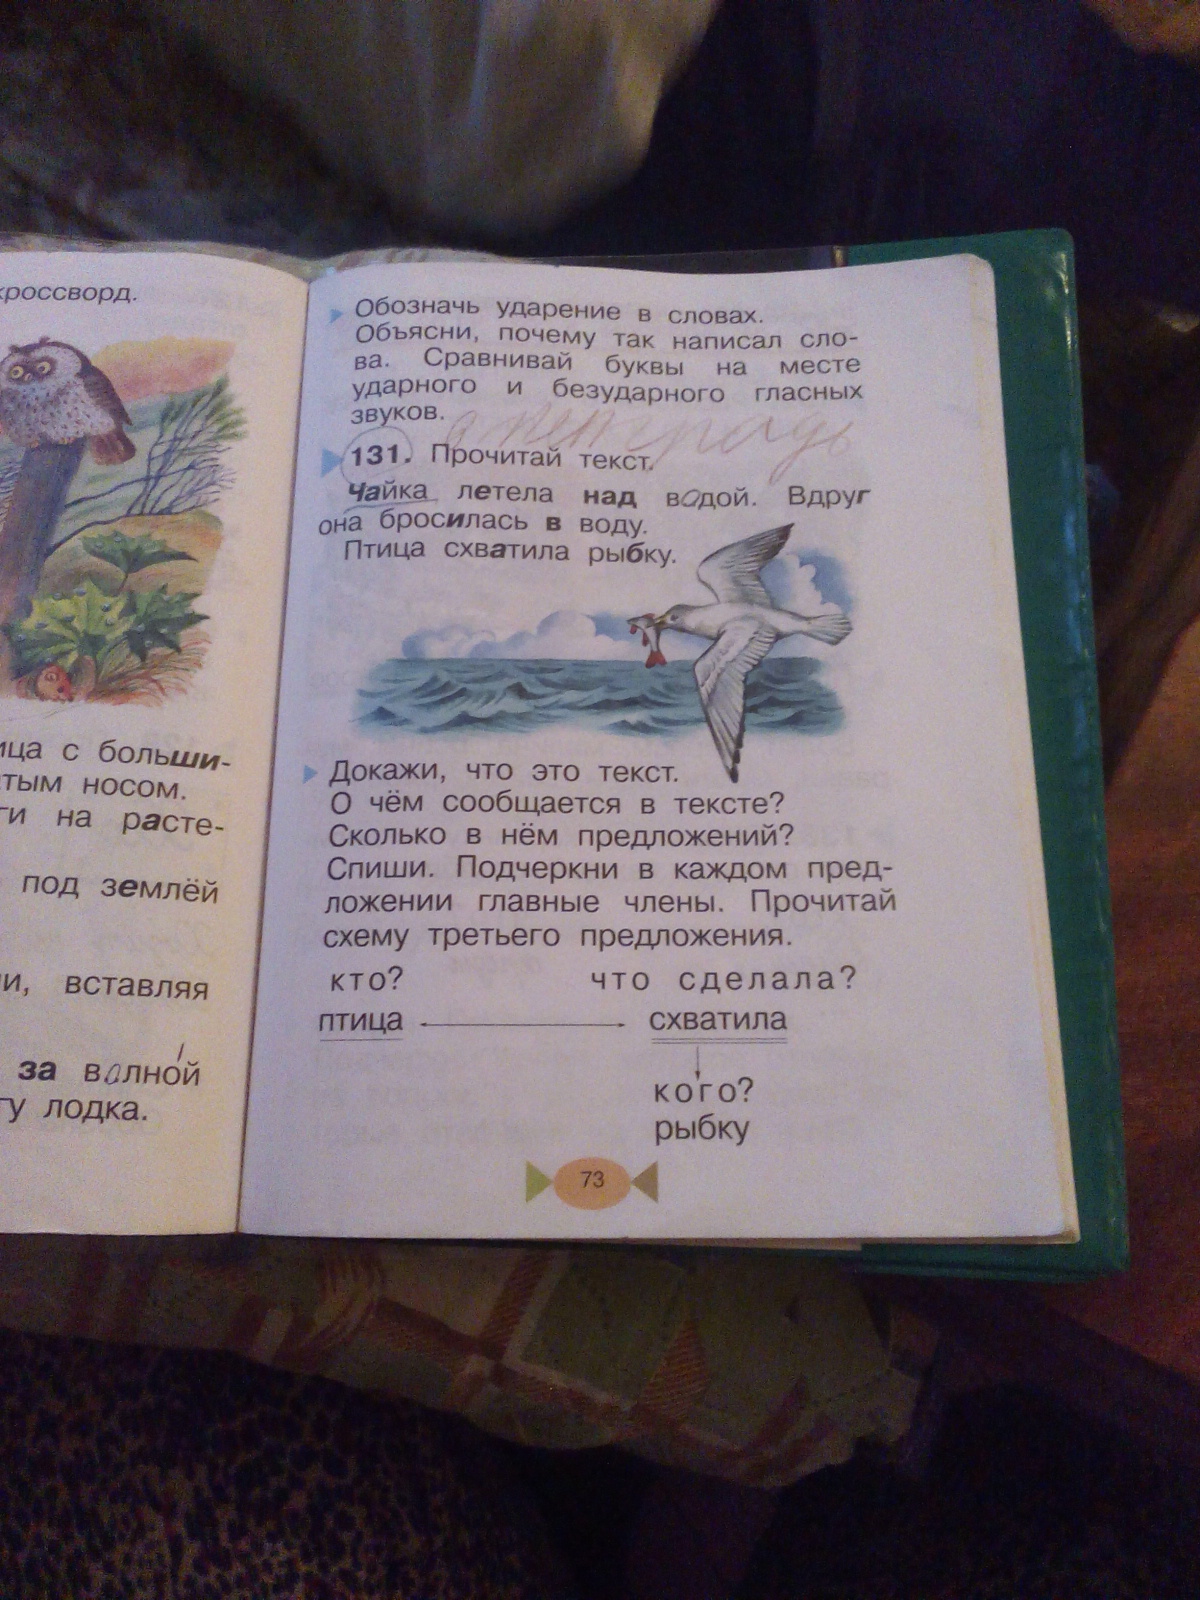 кроссворд.
ица с больши-
тым носом.
ги на расте-
под землёй
и, вставляя
за волной
гу лодка.
Обозначь ударение в словах.
Объясни, почему так написал сло-
ва. Сравнивай буквы на месте
ударного и безударного гласных
звуков.
в тетрадь
131. Прочитай текст.
Чайка летела над водой. Вдруг
она бросилась в воду.
Птица схватила рыбку.
Докажи, что это текст.
О чём сообщается в тексте?
Сколько в нём предложений?
Спиши. Подчеркни в каждом пред-
ложении главные члены. Прочитай
схему третьего предложения.
кто? что сделала?
птица схватила
кого?
рыбку
73